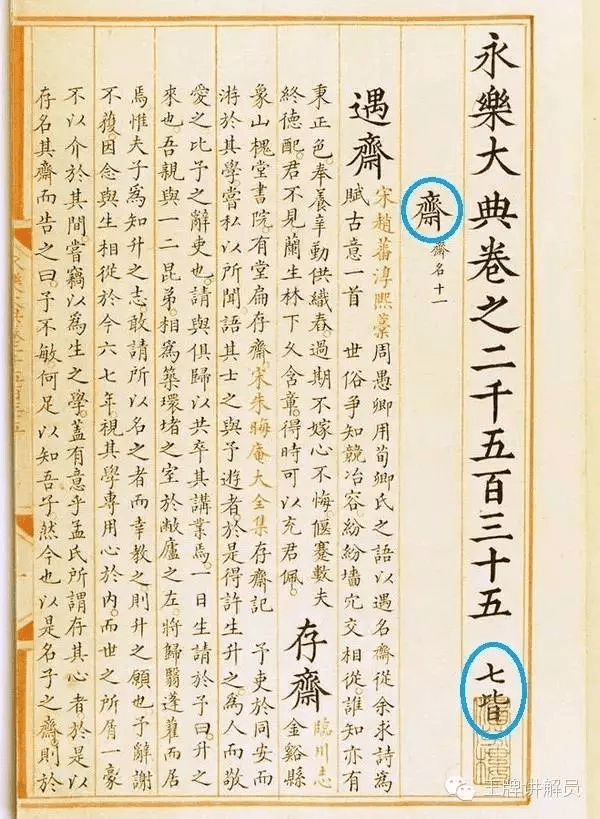 永樂大典卷之二千五百三十五 七皆
齋 齋名十一
遇齋 宋趙蕃淳熙藁 周愚卿用荀卿氏之語以遇名齋從余求詩爲
賦古意一首 世俗争知競冶容紛紛墻宂交相從誰知亦有
秉正色。奉養辛勤供織舂。過期不嫁心不悔。偃蹇數夫
終德配。君不見蘭生林下乆含章。得時可以充君佩。
存齋 臨川志
金谿縣
象山槐堂書院。有堂扁存齋。宋朱晦庵大全集 存齋記 予吏於同安而
游於其學。嘗私以所聞語其士之與予遊者。於是得許生升之。爲人而敬
愛之。比予之辭吏也。請與俱歸以共卒其講業焉。一日生請於予曰。升之
來也。吾親與一二昆弟。相爲築環堵之室於敝廬之左。將歸翳蓬藋而居
焉。惟夫子爲知升之志。敢請所以名之者而幸教之。則升之願也。予辭謝
不獲。因念與生相從於今六七年。視其學專用心於内。而世之所屑一豪
不以介於其間。嘗竊以爲生之學。蓋有意乎孟氏所謂存其心者。於是以
存名其齋而告之曰。予不敏何足以知吾子。然今也以是名子之齋。則於
王牌讲解员